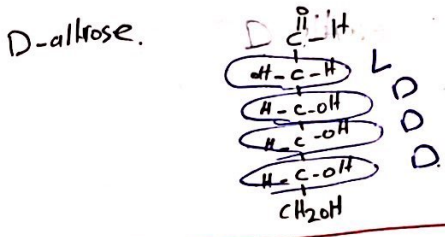 D-altrose.
D
O
C-H
OH-C-H L
H-C-OH D
H-C-OH D
H-C-OH D.
CH2OH